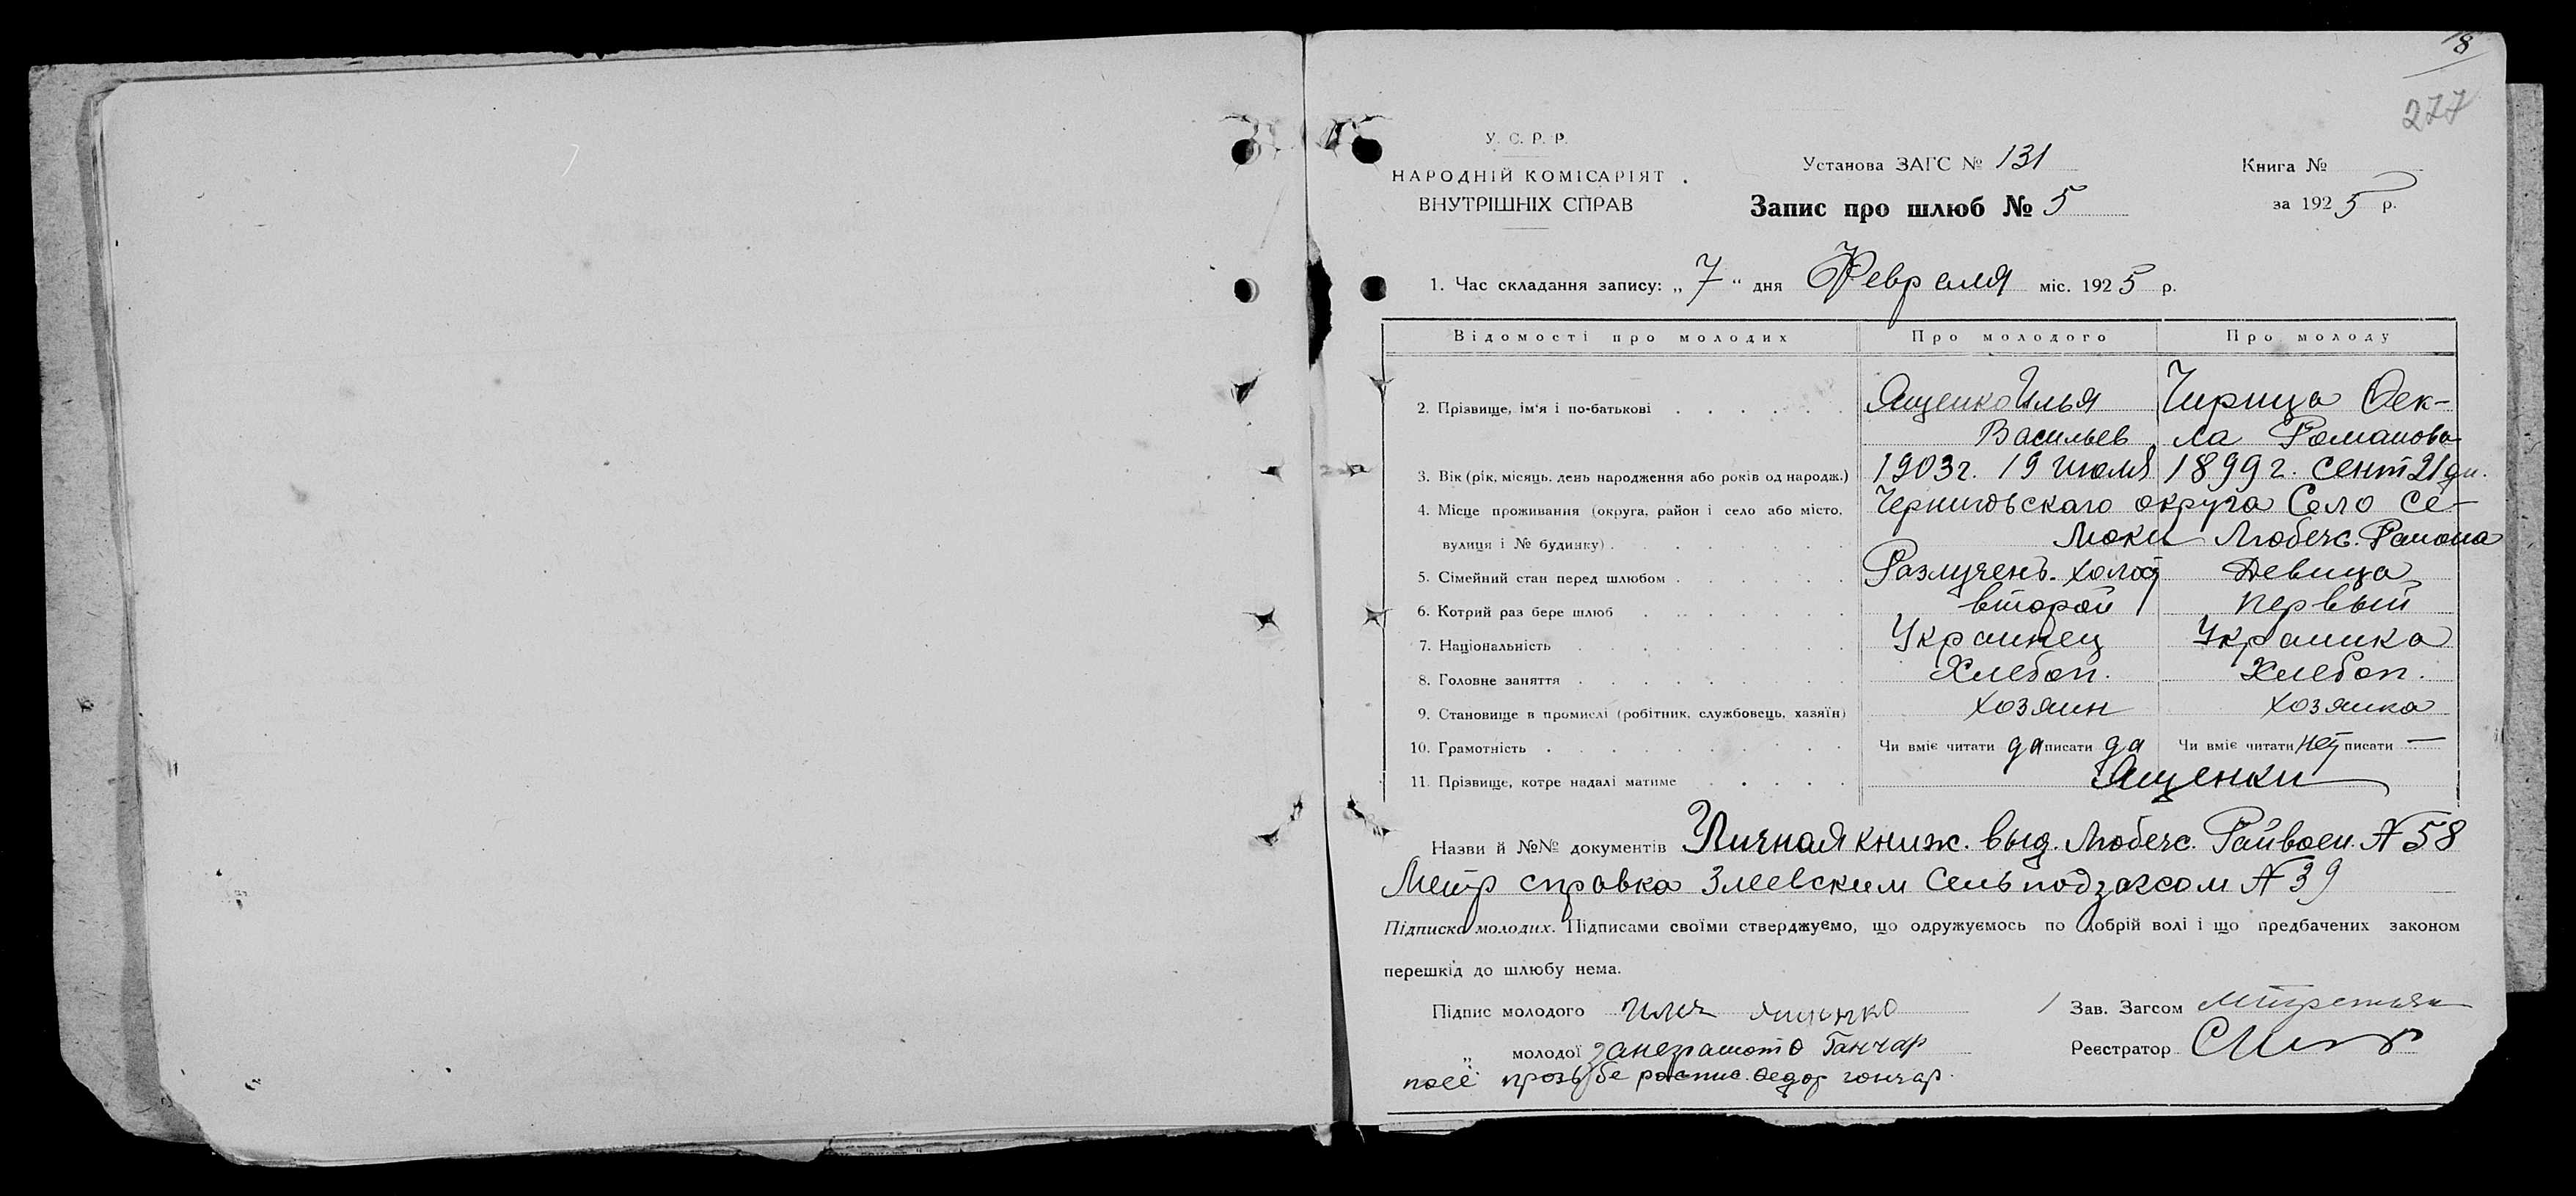 8
277
У. С. Р. Р.
НАРОДНІЙ КОМІСАРІЯТ
ВНУТРІШНІХ СПРАВ
Установа ЗАГС № 131
Книга №
Запис про шлюб № 5
за 1925 р.
1. Час складання запису: „ 7 “ дня Февраля міс. 1925 р.
Відомості про молодих Про молодого Про молоду
2. Прізвище, ім'я і по-батькові Ященко Илья Чирица Фек-
Васильев ла Романова
3. Вік (рік, місяць, день народження або років од народж.) 1903 г. 19 июля 1899 г. сент 21 дн.
4. Місце проживання (округа, район і село або місто, Черниговскаго округа Село Се-
вулиця і № будинку) люки Любечс. Района
5. Сімейний стан перед шлюбом Разлучень. холост Девица
6. Котрий раз бере шлюб второй первый
7. Національність Украинец Украинка
8. Головне заняття Хлебоп. Хлебоп.
9. Становище в промислі (робітник, службовець, хазяїн) хозяин хозяйка
10. Грамотність Чи вміє читати да писати да Чи вміє читати нет писати —
11. Прізвище, котре надалі матиме Ященки
Назви й №№ документів Личная книж. выд. Любечс. Райвоен. № 58
Метр справка Злеевским Сельподзагсом № 39
Підписка молодих. Підписами своїми стверджуємо, що одружуємось по добрій волі і що предбачених законом
перешкід до шлюбу нема.
Підпис молодого Илия Ященко Зав. Загсом
„ молодої за неграмотъ Ганчар Реєстратор
по её прозьбе роспис. Федор гончар.